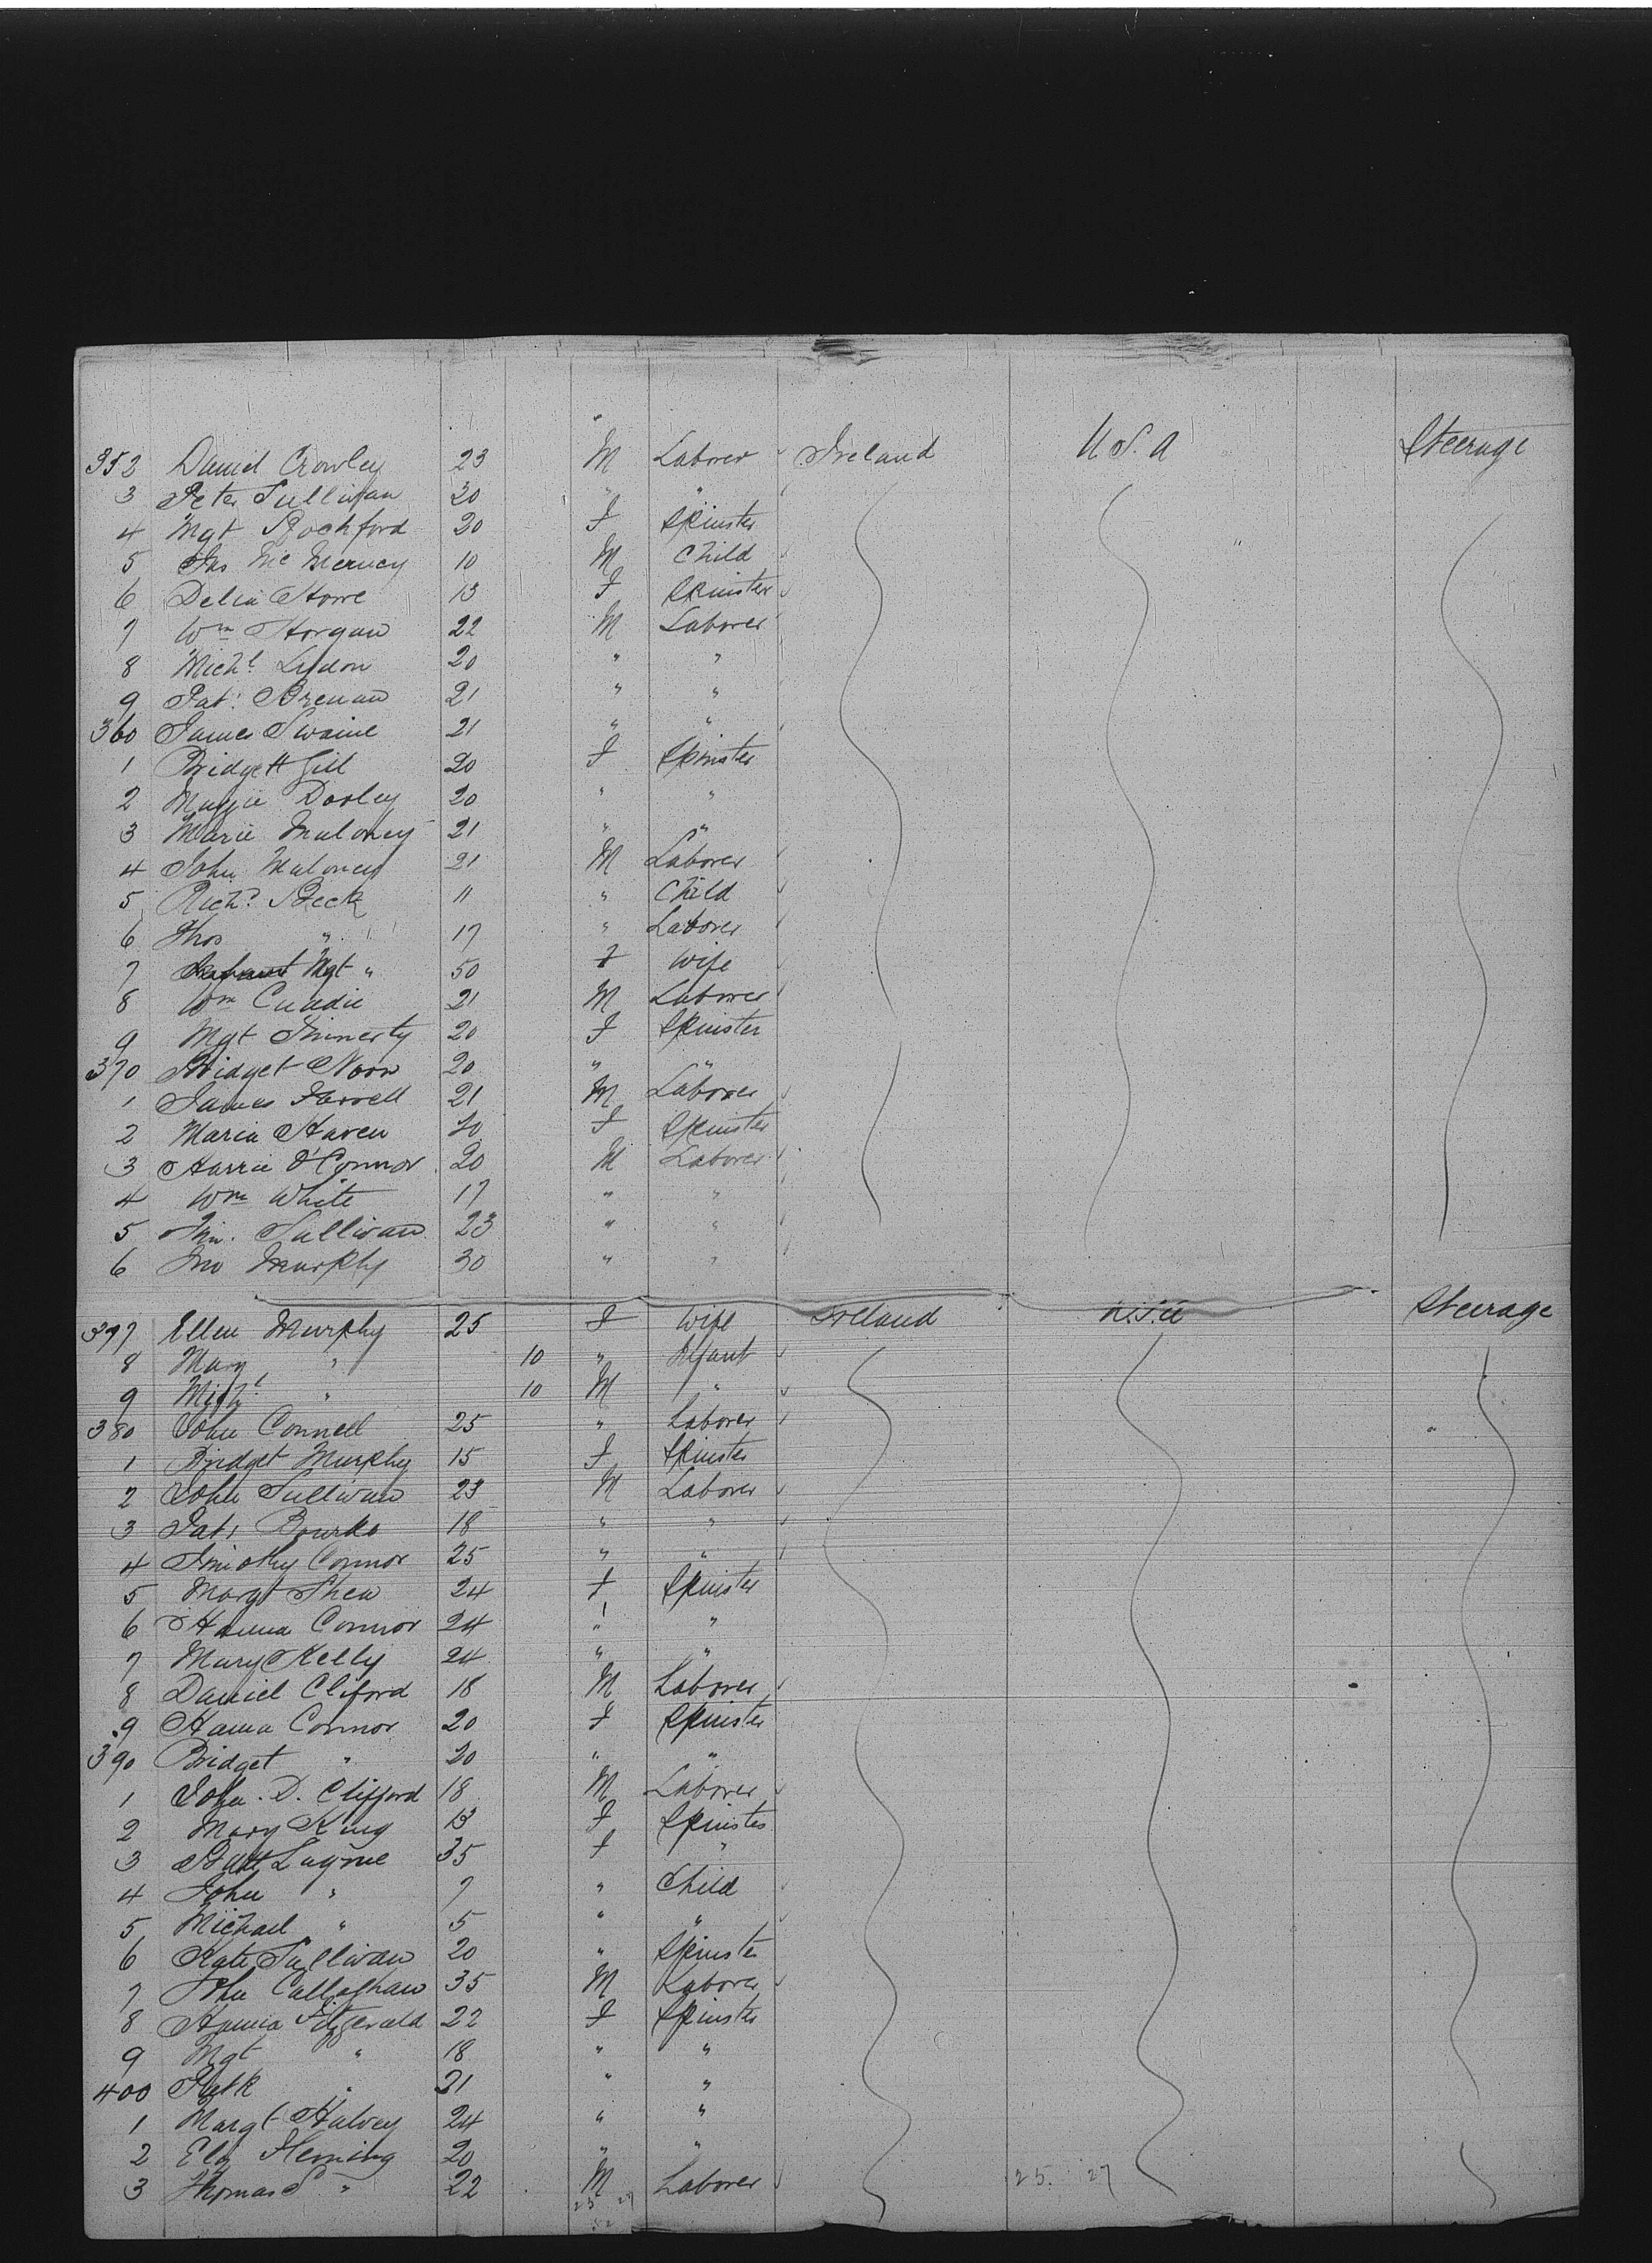 352 Daniel Crowley 23 M Laborer Ireland U.S.A Steerage
3 Peter Sullivan 20 " "
4 Mgt Rochford 20 F Spinster
5 Jas Mc Inerney 10 M Child
6 Delia Howe 13 F Spinster
7 Wm Horgan 22 M Laborer
8 Michl Lydon 20 " "
9 Pat. Brenan 21 " "
360 James Swaine 21 " "
1 Bridgett Gill 20 F Spinster
2 Maggie Dooley 20 " "
3 Marie Maloney 21 " "
4 John Maloney 21 M Laborer
5 Richd Beck 11 " Child
6 Thos " 17 " Laborer
7 Mgt " 50 F Wife
8 Wm Cuddie 21 M Laborer
9 Mgt Finnerty 20 F Spinster
370 Bridget Noon 20 " "
1 James Farrell 21 M Laborer
2 Maria Haven 20 F Spinster
3 Harrie O'Connor 20 M Laborer
4 Wm White 17 " "
5 Sullivan 23 " "
6 Jno Murphy 30 " "
397 Ellen Murphy 25 F Wife Ireland U.S.A Steerage
8 Mary " 10 " Infant
9 Michl " 10 M "
380 John Connell 25 " Laborer "
1 Bridget Murphy 15 F Spinster
2 John Sullivan 23 M Laborer
3 Pat. Bourke 18 " "
4 Timothy Connor 25 " "
5 Margt Shea 24 F Spinster
6 Hanna Connor 24 " "
7 Mary Kelly 24 " "
8 Daniel Cliford 18 M Laborer
9 Hanna Connor 20 F Spinster
390 Bridget " 20 " "
1 John. D. Clifford 18 M Laborer
2 Mary King 13 F Spinster
3 Layne 35 F "
4 John " 7 " Child
5 Michael " 5 " "
6 Kate Sullivan 20 " Spinster
7 John Callaghan 35 M Laborer
8 Hanna Fitzgerald 22 F Spinster
9 Mgt " 18 " "
400 Patk " 21 " "
1 Margt Halvey 24 " "
2 Eliz Fleming 20 " "
3 Thomas S " 22 M Laborer
25 27 25. 27
52